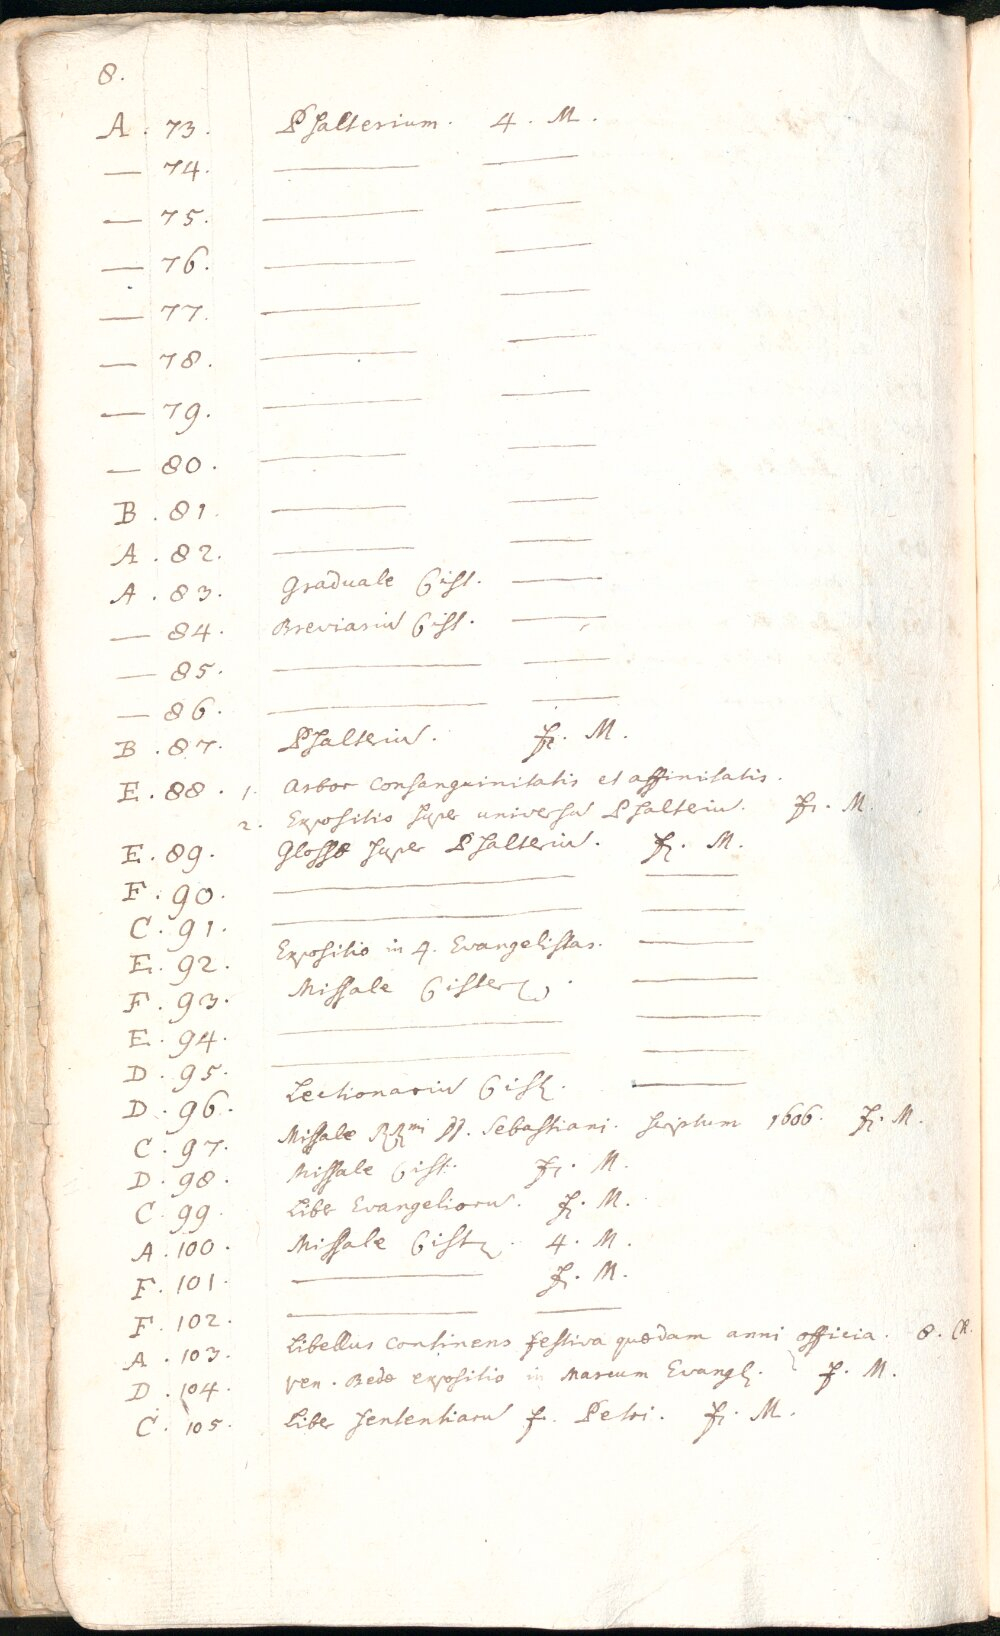 8.
A . 73 . Psalterium . 4 . M .
— 74 . — —
— 75 . — —
— 76 . — —
— 77 . — —
— 78 . — —
— 79 . — —
— 80 . — —
B . 81 — —
A . 82 . — —
A . 83 . Graduale Cist . —
— 84 . Breviariū Cist . —
— 85 . — —
— 86 . — —
B . 87 . Psalteriū . f. M .
E . 88 . 1 . Arbor consanguinitatis et affinitatis .
2 . Expositio super universū Psalteriū . f. M .
E . 89 . Glossæ super Psalteriū . f. M .
F . 90 . — —
C . 91 . — —
E . 92 . Expositio in 4 . Evangelistas . —
F . 93 . Missale Cister . —
E . 94 . — —
D . 95 . — —
D . 96 . Lectionariū Cist . —
C . 97 . Missale RR.mi D . Sebastiani . scriptum 1606 . f. M .
D . 98 . Missale Cist . f. M .
C . 99 . Liber Evangeliorū . f. M .
A . 100 . Missale Cist . 4 . M .
F . 101 . — f. M .
F . 102 . — —
A . 103 . Libellus continens festiva quædam anni officia . 8 . Ch .
D . 104 . Ven . Bedæ expositio in Marcum Evangel . f. M .
C . 105 . Liber sententiarū Petri . f. M .